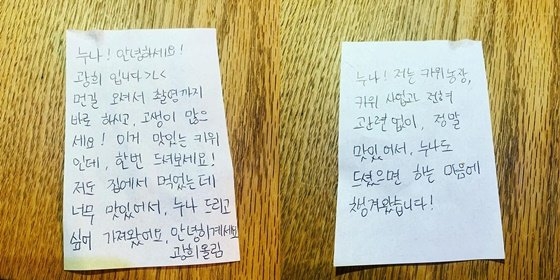 누나! 안녕하세요!
광희 입니다>.<
먼길 오셔서 촬영까지
바로 하시고, 고생이 많으
세요! 이거 맛있는 키위
인데, 한번 드셔보세요!
저도 집에서 먹었는데
너무 맛있어서, 누나 드리고
싶어 가져왔어요, 안녕히계세요
광희올림
누나! 저는 키위농장,
키위 사업과는 전혀
관련없이, 정말
맛있어서, 누나도
드셨으면 하는 마음에
챙겨왔습니다!